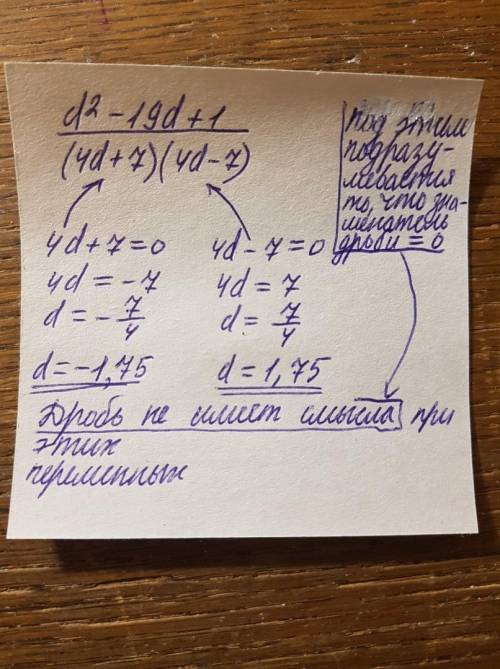 d² - 19d + 1
(4d+7)(4d-7)
под этим
подразу-
мевается
то, что зна-
менатель
дроби = 0
4d + 7 = 0
4d = -7
d = - 7/4
d = -1,75
4d - 7 = 0
4d = 7
d = 7/4
d = 1,75
Дробь не имеет смысла при
этих
переменных